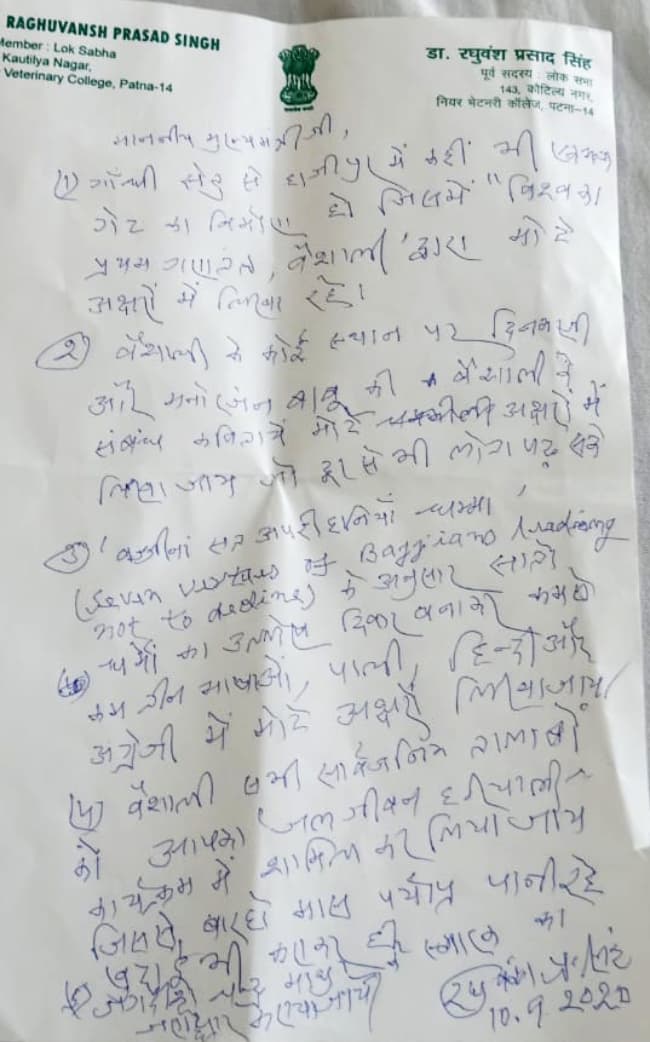 RAGHUVANSH PRASAD SINGH
Member : Lok Sabha
Kautilya Nagar,
Veterinary College, Patna-14
डा. रघुवंश प्रसाद सिंह
पूर्व सदस्य : लोक सभा
143, कौटिल्य नगर,
नियर भेटनरी कॉलेज, पटना-14
माननीय मुख्यमंत्री जी,
(1) गाँधी सेतु से हाजीपुर में कहीं भी
गेट का निर्माण हो जिसमें "विश्व का
प्रथम गणतंत्र, वैशाली" द्वारा मोटे
अक्षरों में लिखा रहे।
(2) वैशाली के कोई स्थान पर दिनकर जी
और मनोरंजन बाबू की वैशाली से
संबंध कविताएँ मोटे चमकीली अक्षरों में
लिखा जाय जो दूर से भी लोग पढ़ सकें
(3) धम्मा,
(Seven virtues of Bajjians leading
not to decline) के अनुसार सातो
धर्मों का उल्लेख बनाकर कम से
कम तीन भाषाओं, पाली, हिन्दी और
अंग्रेजी में मोटे अक्षरों लिखा जाय
(4) वैशाली सभी सार्वजनिक तालाबों
को आपका 'जल जीवन हरियाली'
कार्यक्रम में शामिल कर लिया जाय
जिससे बारहो मास पर्याप्त पानी रहे
भी का
10.9.2020